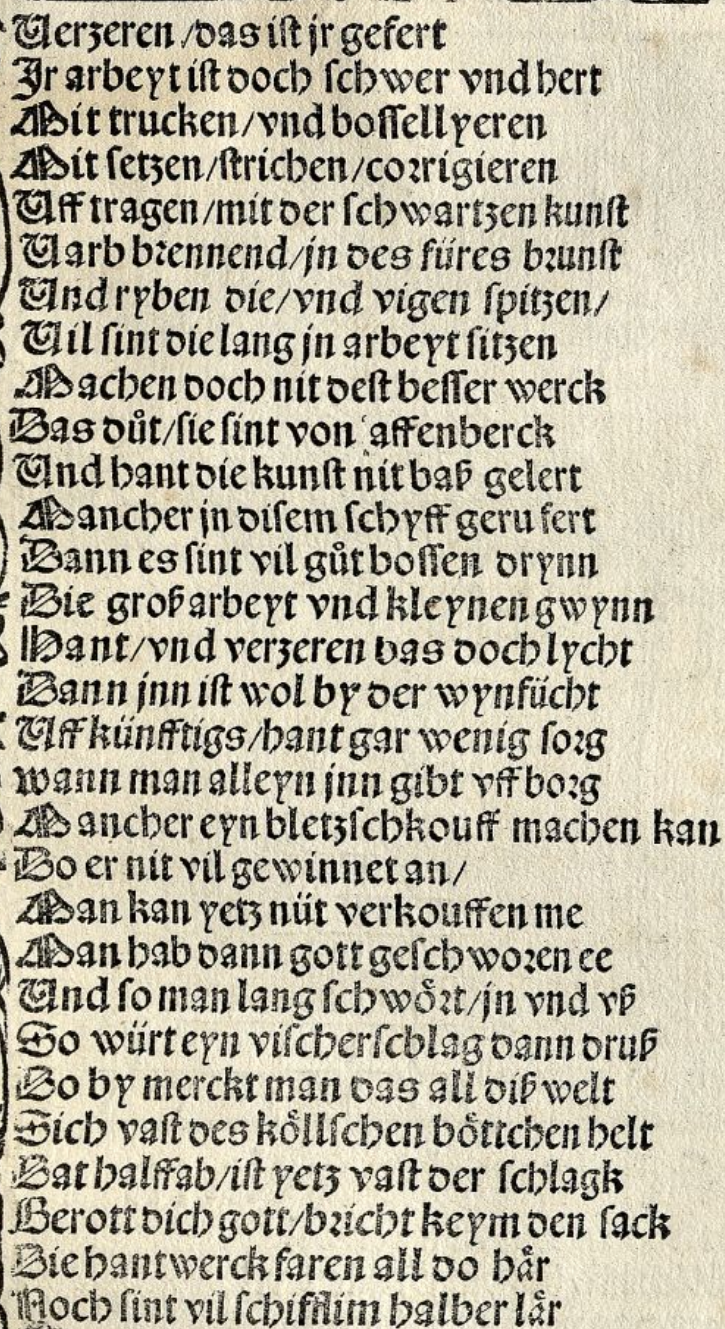 Verzeren/das ist jr gefert
Jr arbeyt ist doch schwer vnd hert
Mit trucken/vnd bossellyeren
Mit setzen/strichen/corrigieren
Vff tragen/mit der schwartzen kunst
Varb brennend/jn des füres brunst
Vnd ryben die/vnd vigen spitzen/
Vil sint die lang jn arbeyt sitzen
Machen doch nit dest besser werck
Das důt/sie sint von affenberck
Vnd hant die kunst nit baß gelert
Mancher jn disem schyff geru fert
Dann es sint vil gůt bossen drynn
Die groß arbeyt vnd kleynen gwynn
Hant/vnd verzeren das doch lycht
Dann jnn ist wol by der wynfücht
Vff künfftigs/hant gar wenig sorg
wann man alleyn jnn gibt vff borg
Mancher eyn bletzschkouff machen kan
Do er nit vil gewinnet an/
Man kan yetz nüt verkouffen me
Man hab dann gott geschworen ee
Vnd so man lang schwoͤrt/jn vnd vß
So würt eyn vischerschlag dann druß
Do by merckt man das all diß welt
Sich vast des koͤllschen boͤttchen helt
Dat halff ab/ist yetz vast der schlagk
Berott dich gott/bricht keym den sack
Die hantwerck faren all do haͤr
Noch sint vil schifflim halber laͤr